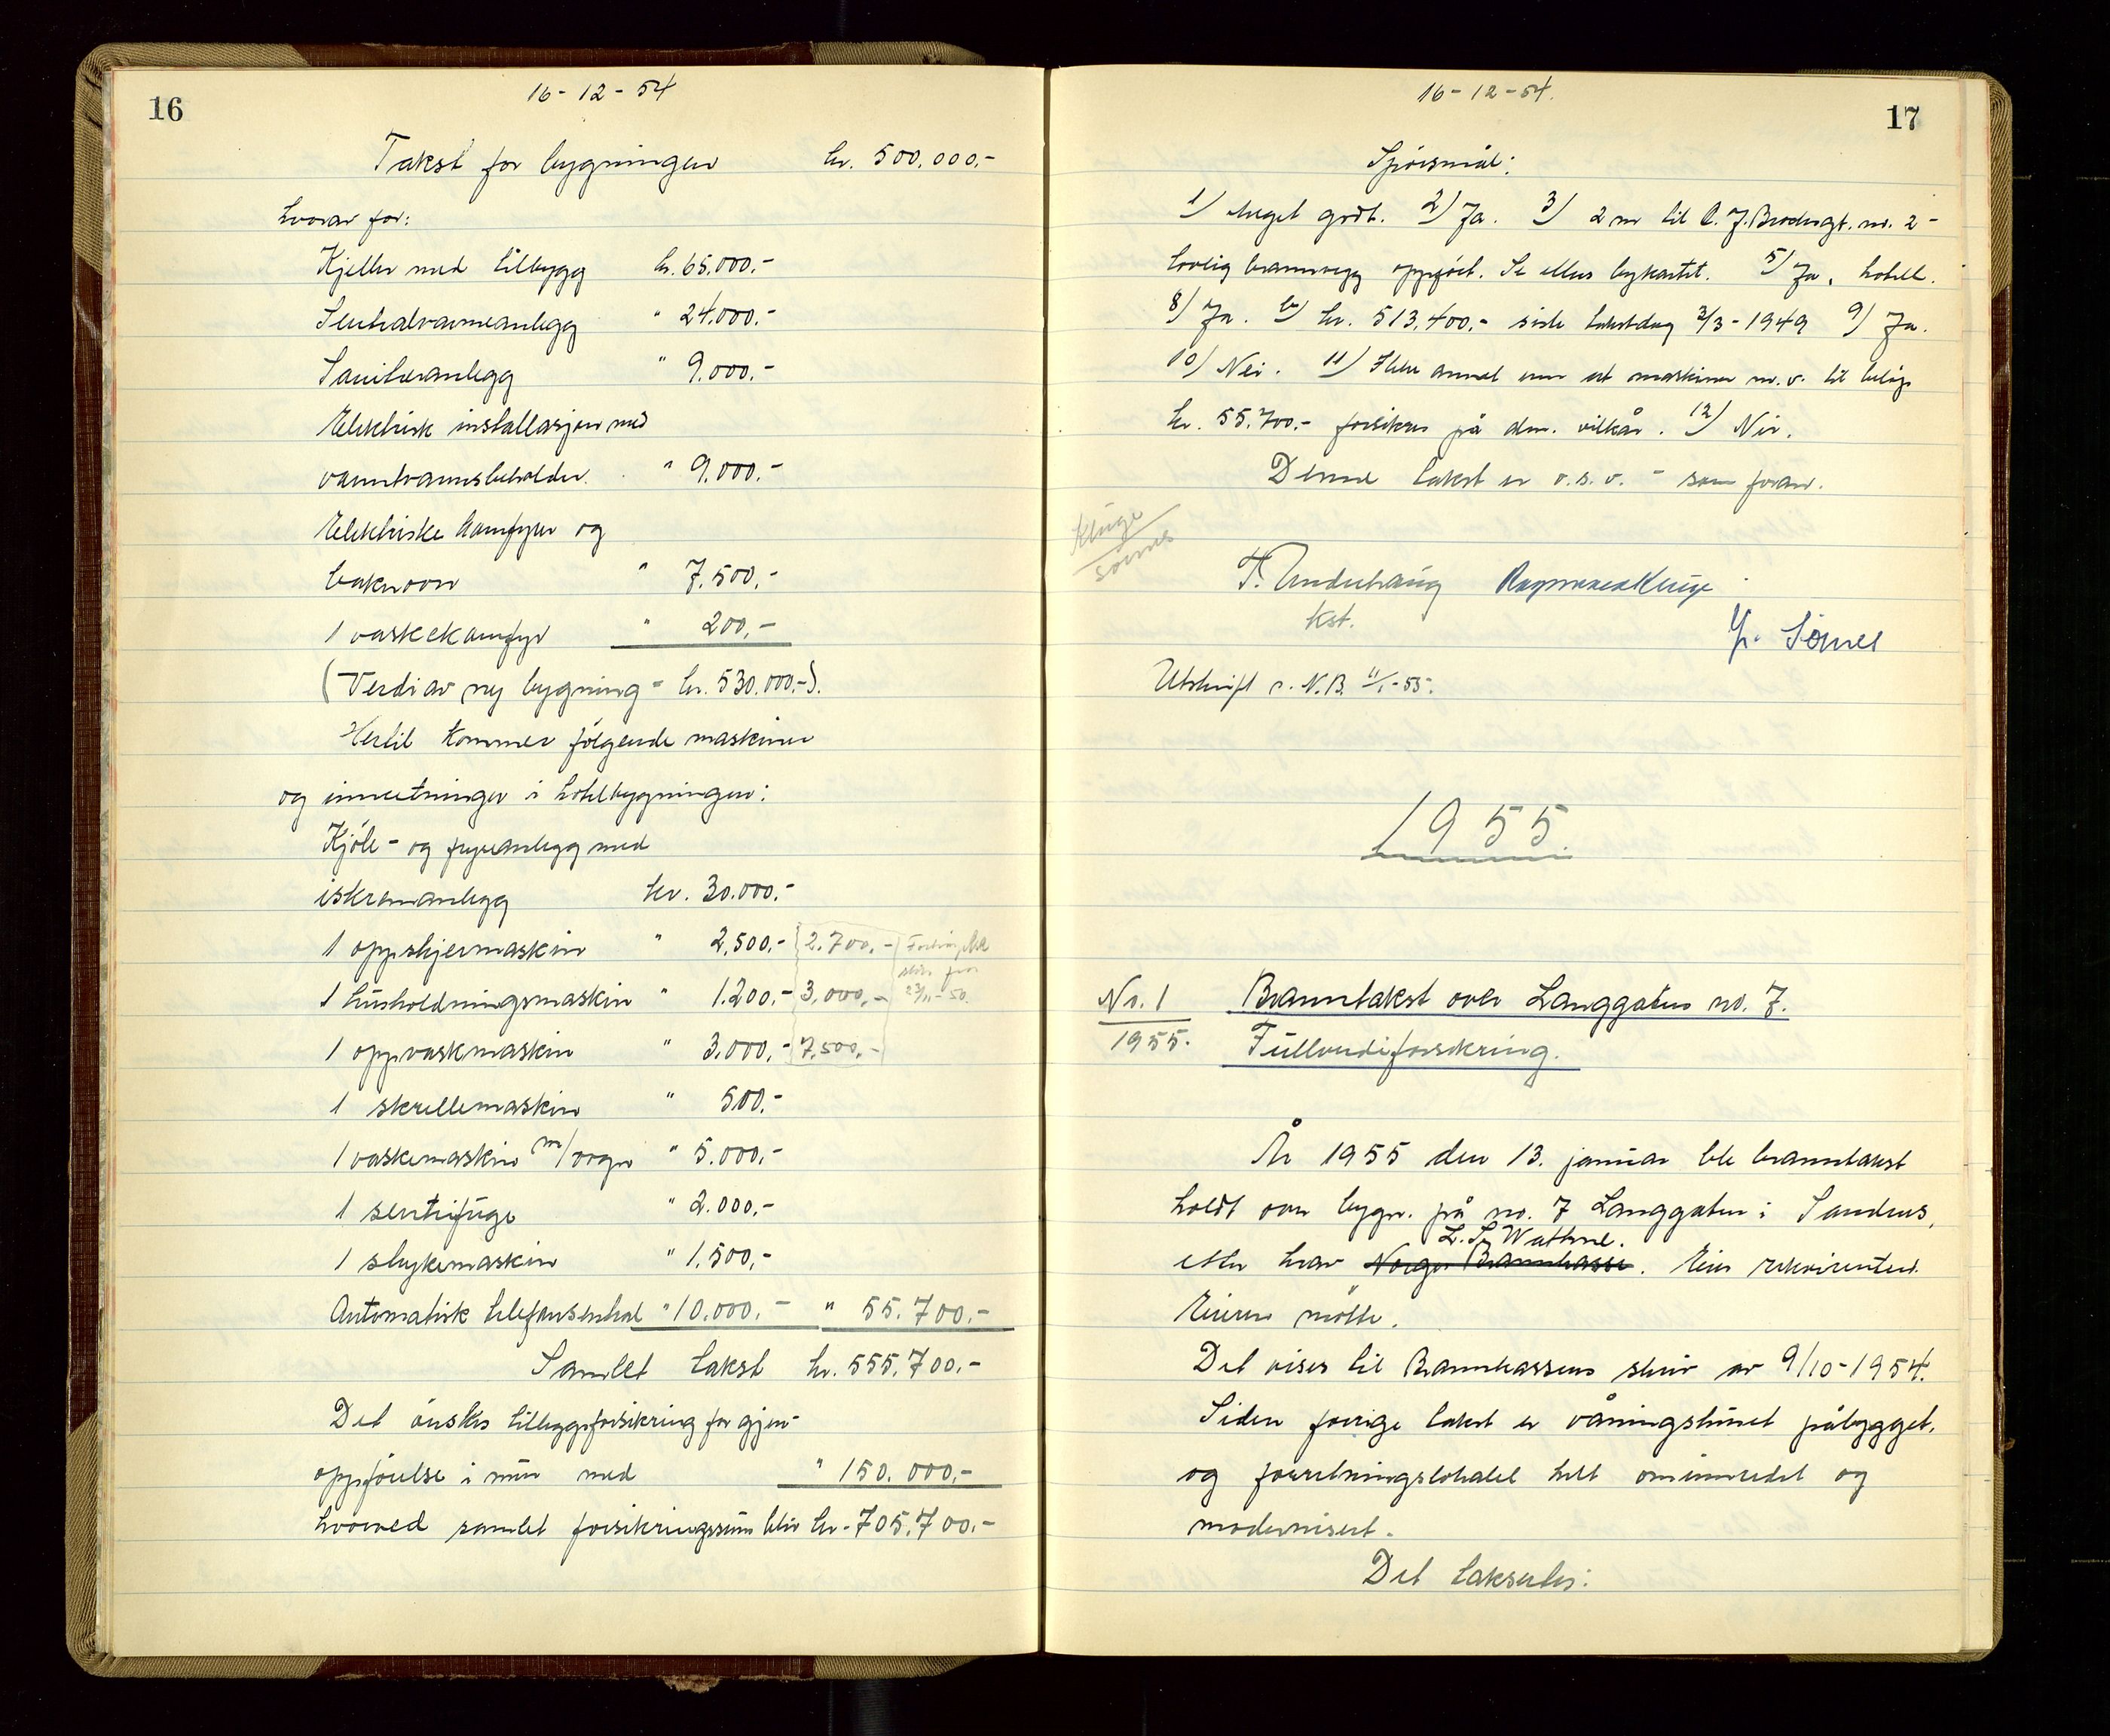 16
16-12-54
Takst for bygningen kr. 500.000.-
hvorav for:
Kjeller med tilbygg kr. 65.000.-
Sentralvarmeanlegg " 24.000.-
Sanitæranlegg " 9.000.-
Elektrisk installasjon med
varmtvannsbeholder. " 9.000.-
Elektriske komfyrer og
bakerovn " 7.500.-
1 vaskekomfyr " 200.-
(Verdi av ny bygning = kr. 530.000.-).
Hertil kommer følgende maskiner
og innretninger i hotelbygningen:
Kjøle- og fryseanlegg med
iskremanlegg kr. 30.000.-
1 oppskjermaskin " 2.500.- 2.700.-
1 husholdningsmaskin " 1.200.- 3.000.- 23/11-50.
1 oppvaskmaskin " 3.000.- 7.500.-
1 skrellemaskin " 500.-
1 vaskemaskin m/ovn " 5.000.-
1 sentrifuge " 2.000.-
1 strykemaskin " 1.500.-
Automatisk telefonsentral " 10.000.- " 55.700.-
Samlet takst kr. 555.700.-
Det ønskes tilleggsforsikring for gjen-
oppførelse i mur med " 150.000.-
hvorved samlet forsikringssum blir kr. 705.700.-
17
16-12-54.
Spørsmål:
1) Meget godt. 2) Ja. 3) 2 m til C. J. Brochsgt. nr. 2 -
lovlig brannvegg oppført. Se ellers bykartet. 5) Ja, hotell.
8) Ja. 6) kr. 513.400.- siste takstdag 2/3-1949 9) Ja.
10) Nei. 11) Ikke annet enn at maskiner m.v. til beløp
kr. 55.700.- forsikres på alm. vilkår. 12) Nei.
Denne takst er o.s.v. - som foran.
Kluge
Sømes
T. Underhaug Kluge
kst.
Sømes
Utskrift s. N.B. 11/1-55.
1955.
Nr. 1 Branntakst over Langgaten nr. 7.
1955. Fullverdiforsikring.
År 1955 den 13. januar ble branntakst
holdt over bygn. på nr. 7 Langgaten i Sandnes,
L. S. Wathne.
etter krav Norges Brannkasse. Eier rekvirenten.
Eieren møtte.
Det vises til Brannkassens skriv av 9/10-1954.
Siden forrige takst er våningshuset påbygget,
og forretningslokalet helt ominnredet og
modernisert.
Det takseres: